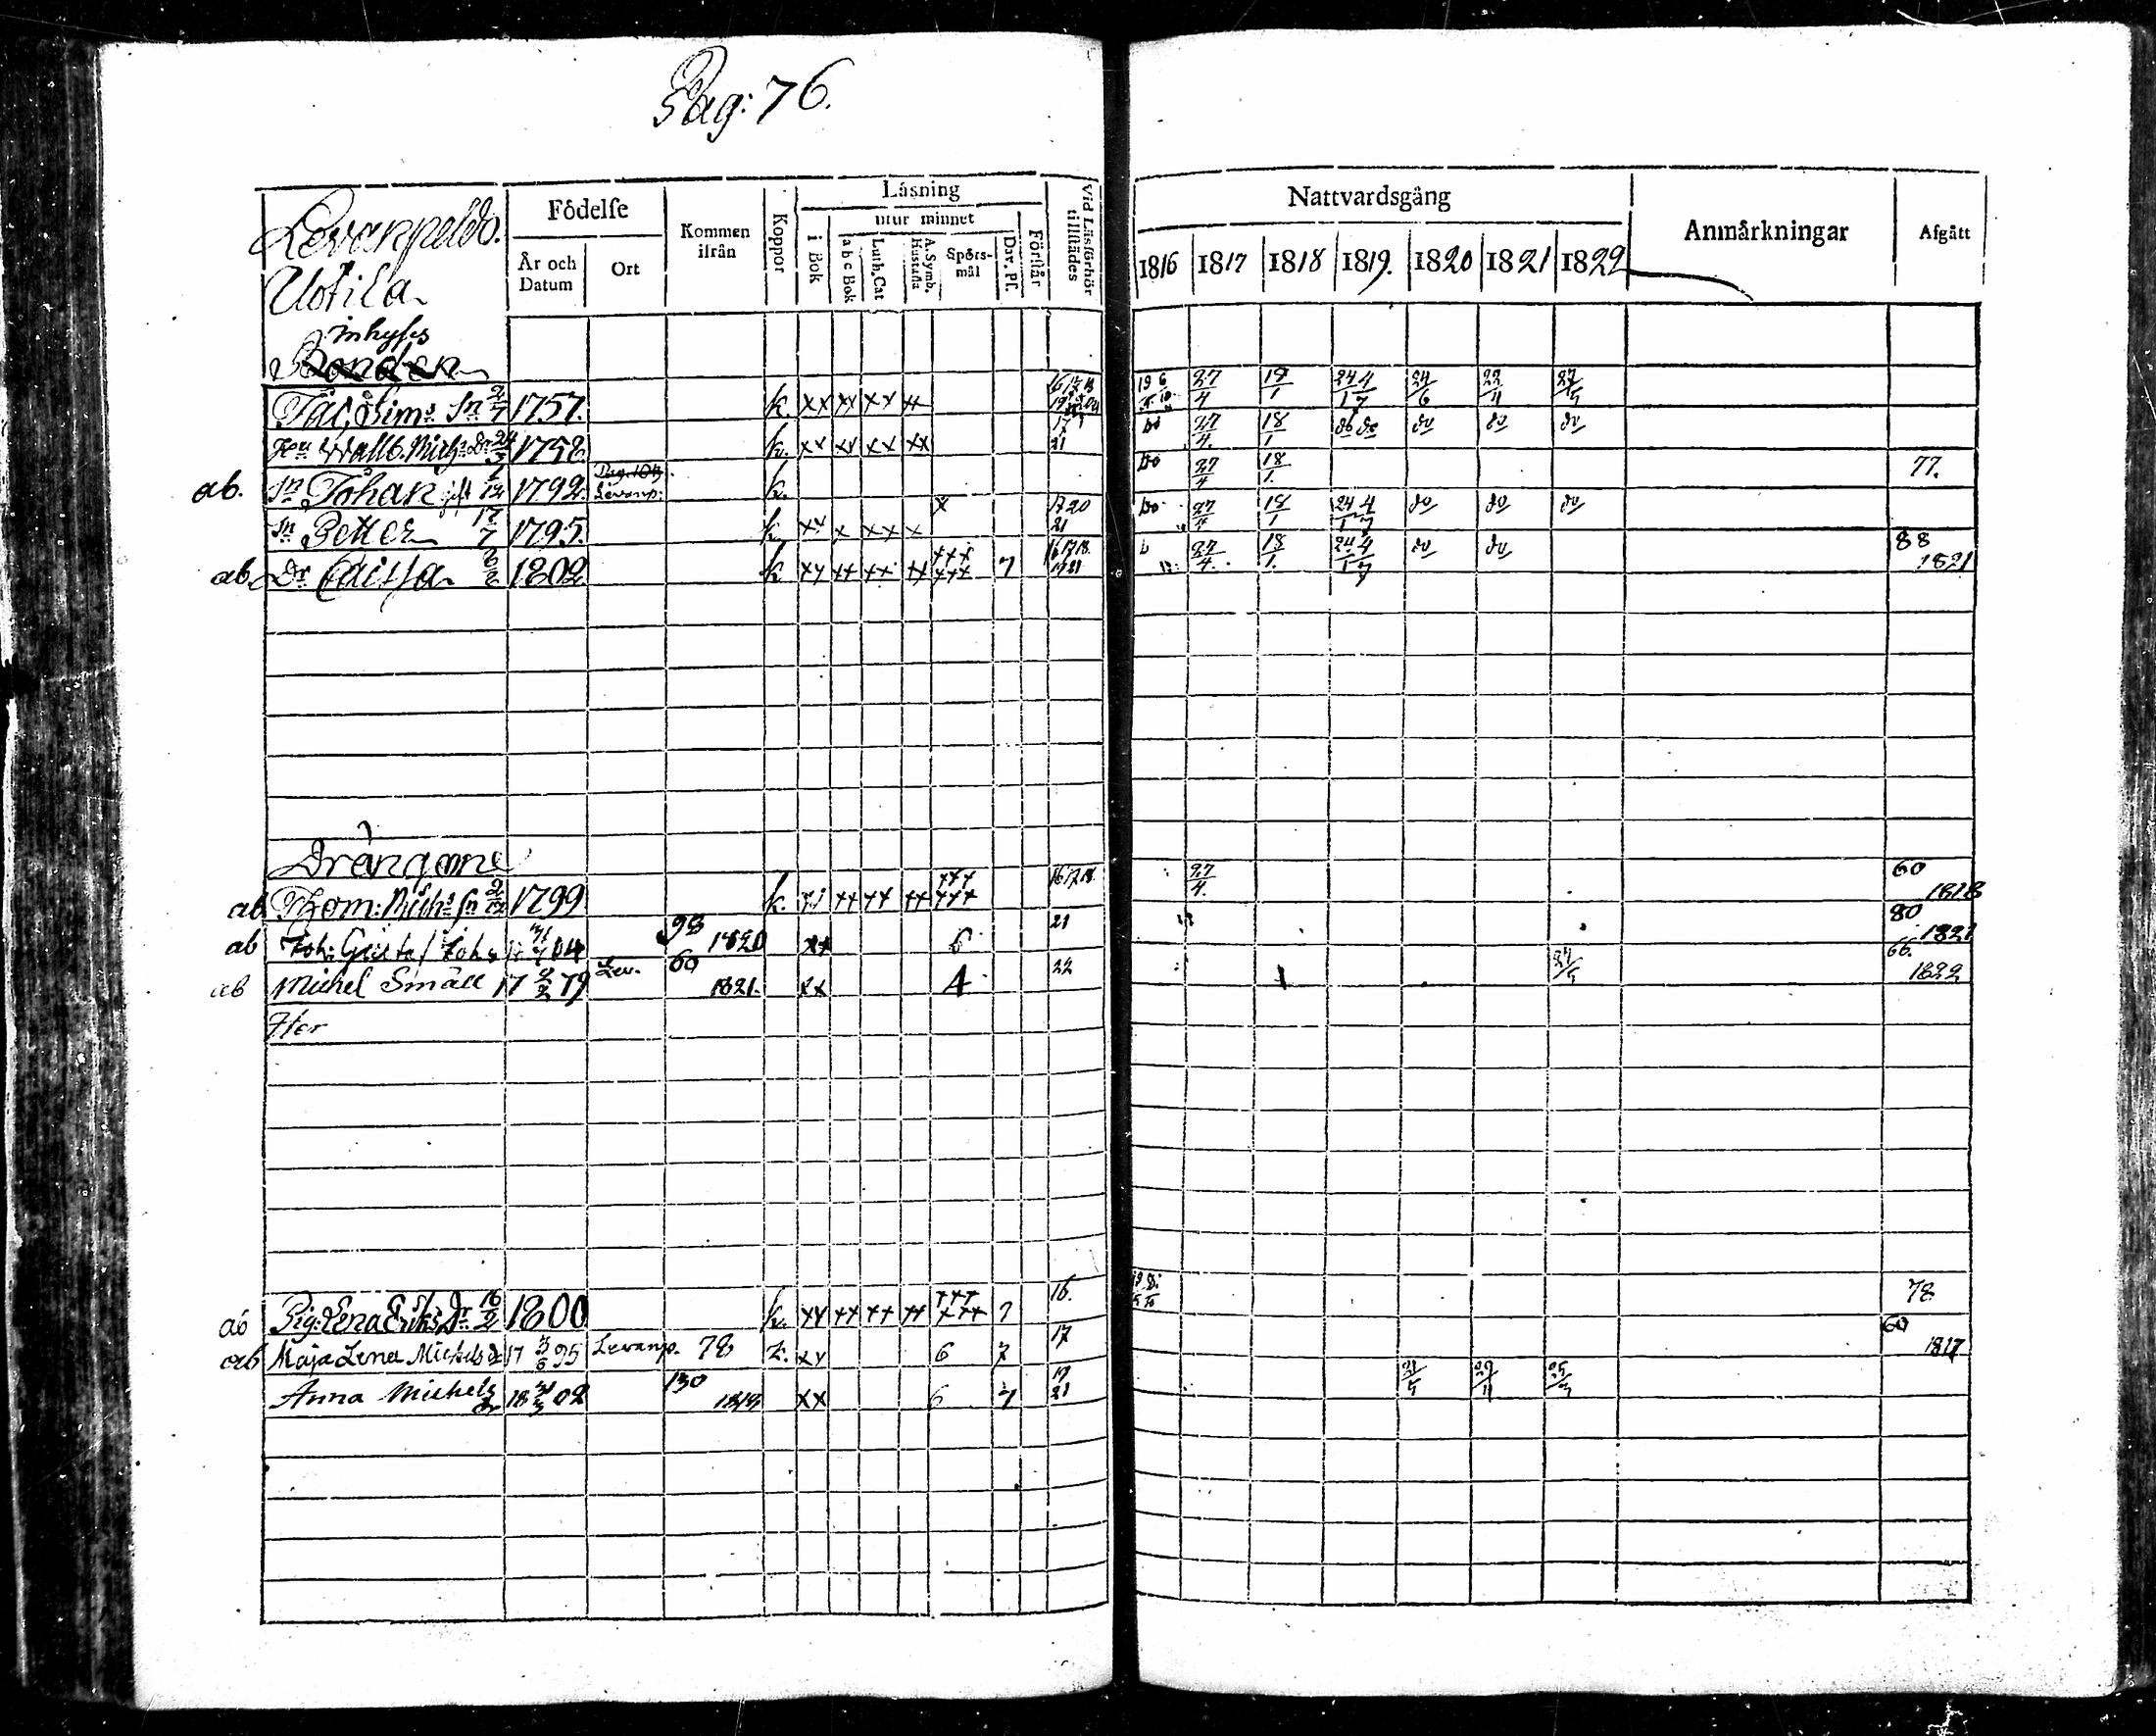 Pag: 76.
Levanpeldo.
Uotila
inhyses
Bonden
Födelse
År och Datum
Ort
Kommen ifrån
Koppor
Läsning
i Bok
utur minnet
a b c Bok
Luth. Cat
A. Symb. Hustafla
Spörs-mål
Dav. Ps.
Förstår
Vid Läsförhör tillstädes
Nattvardsgång
1816 1817 1818 1819. 1820 1821 1822
Anmärkningar
Afgått
Jac. Sim: Sn 1757. k. xx xx xx xx 27/4 18/1 24/1 4/7 24/6 22/11
Hu Wallb. Mich: dr 1758 k. xx xx xx xx 21 Do 27/4. 18/1 do do do do do
ab. Sn Johan 1792. Levanp: k. Do 27/4 18/1. 77.
Sn Petter 17/7 1795. k xx x xx x x 1720 21 Do 27/4 18/1 24/1 4/7 do do do
ab. Dr Caisa 1802 k xx xx xx xx xxx xxx 7 161718. 27/4. 18/1. 24/1 4/7 do do 88 1821
Drängarne
ab Thom: Mich: Sn 1799 k. xx xx xx xx xxx xxx 161718. 27/4. 60 1818
ab Joh: Gustaf Johs 04 98 1820 xx 6 21 80 1821
ab Michel Småll 17 2/2 79 Lev. 60 1821. xx A 22 27/5 66. 1822
Her
ab Pig: Lena Eriks Dr 16/2 1800 k. xx xx xx xx xxx xxx 7 16. 78
ab Maja Lena Michels dr 17 3/6 95 Levanp. 78 k. xx 6 7 17 60 1817
Anna Michels dr 18 02 130 xx 6 7 17 21